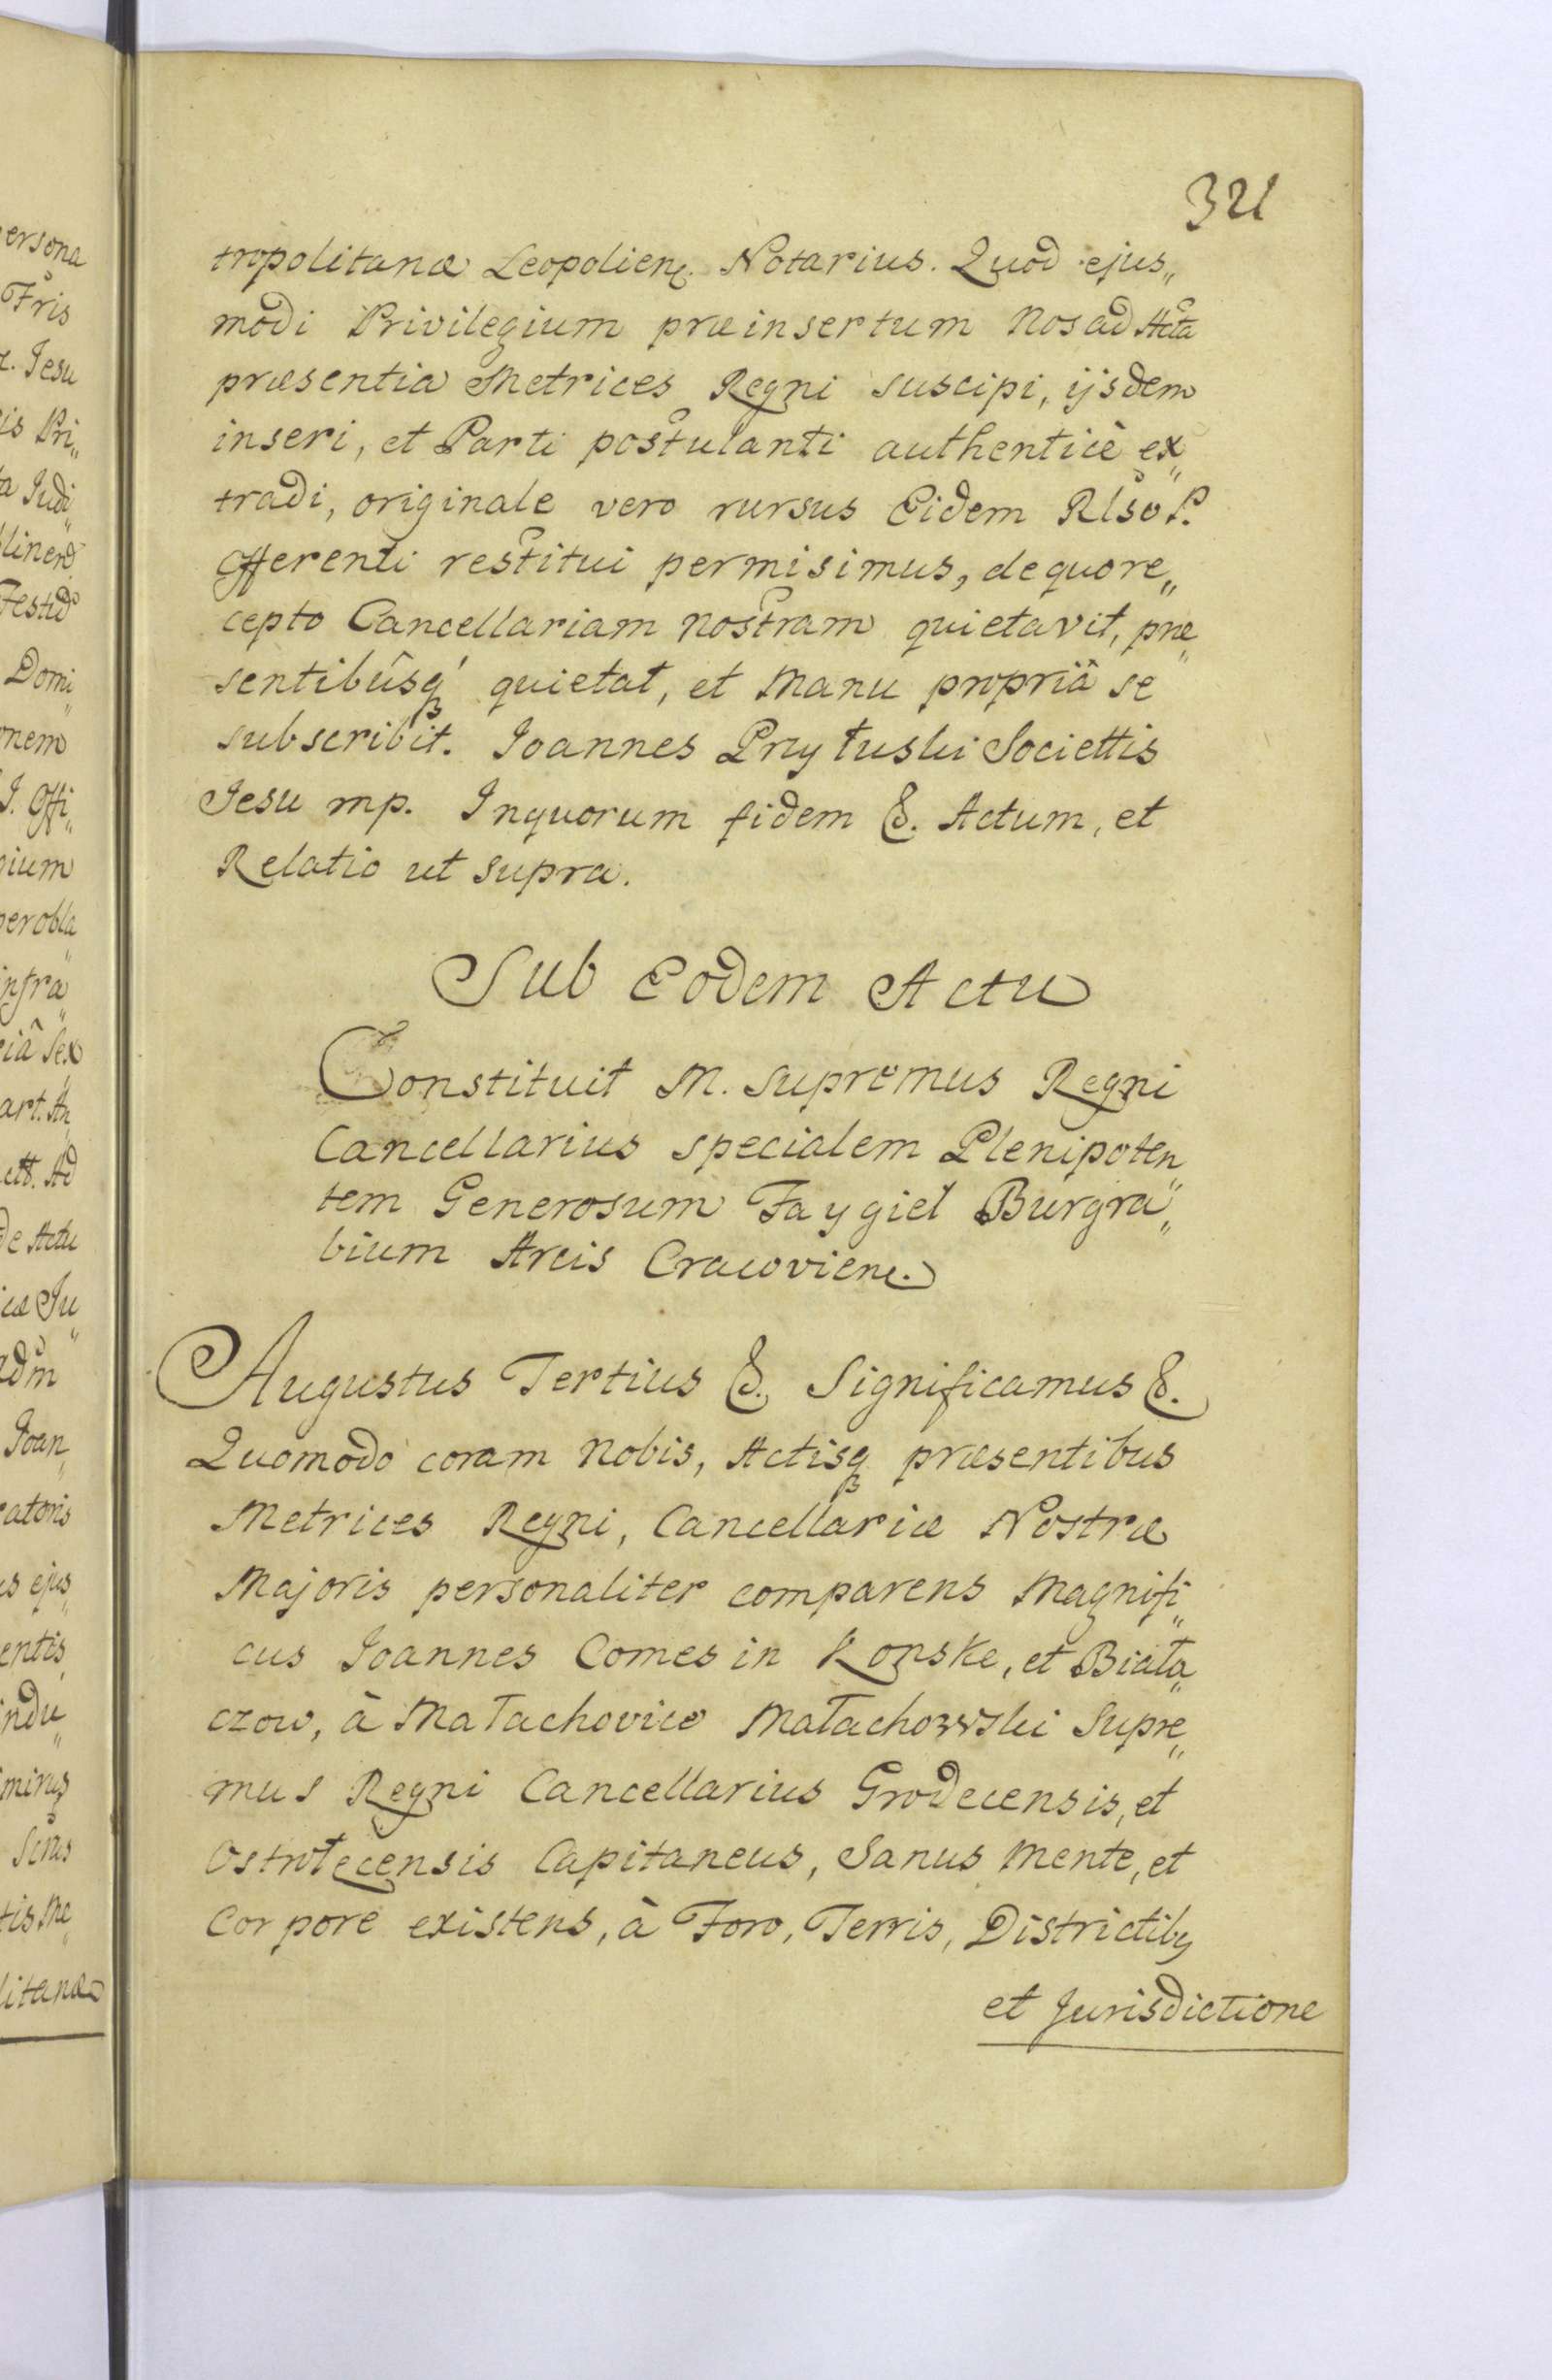 321
tropolitanæ Leopolien. Notarius. Quod ejus„
modi Privilegium præinsertum Nos ad Acta
præsentia Metrices Regni suscipi, ijsdem
inseri, et Parti postulanti authenticè ex„
tradi, originale vero rursus Eidem Rlso P.
Offerenti restitui permisimus, de quo re„
cepto Cancellariam nostram quietavit, præ„
sentibûsq́ quietat, et Manu propriâ se
subscribit. Joannes Przyłuski Societtis
Jesu mp. Inquorum fidem &. Actum, et
Relatio ut supra.
Sub Eodem Actu
Constituit M. Supremus Regni
Cancellarius specialem Plenipoten„
tem Generosum Faygiel Burgra„
bium Arcis Cracovien.
Augustus Tertius &. Significamus &.
Quomodo coram Nobis, Actisq præsentibus
Metrices Regni, Cancellariæ Nostræ
Majoris personaliter comparens Magnifi„
cus Joannes Comes in Konske, et Biała„
czow, à Małachovice Małachowski Supre„
mus Regni Cancellarius Grodecensis, et
Ostrołęcensis Capitaneus, Sanus Mente, et
Corpore existens, à Foro, Terris, Districtibq
et Jurisdictione
ersona
Fris
Jesu
is Pri„
a Judi„
Domi„
nem
J. Offi„
ium
per obla„
infra„
iâ Se
art. An„
ett. Ad
de Actu
Ju„
Joan„
ratoris
s ejus„
entis
indu„
tis Me„
litanæ